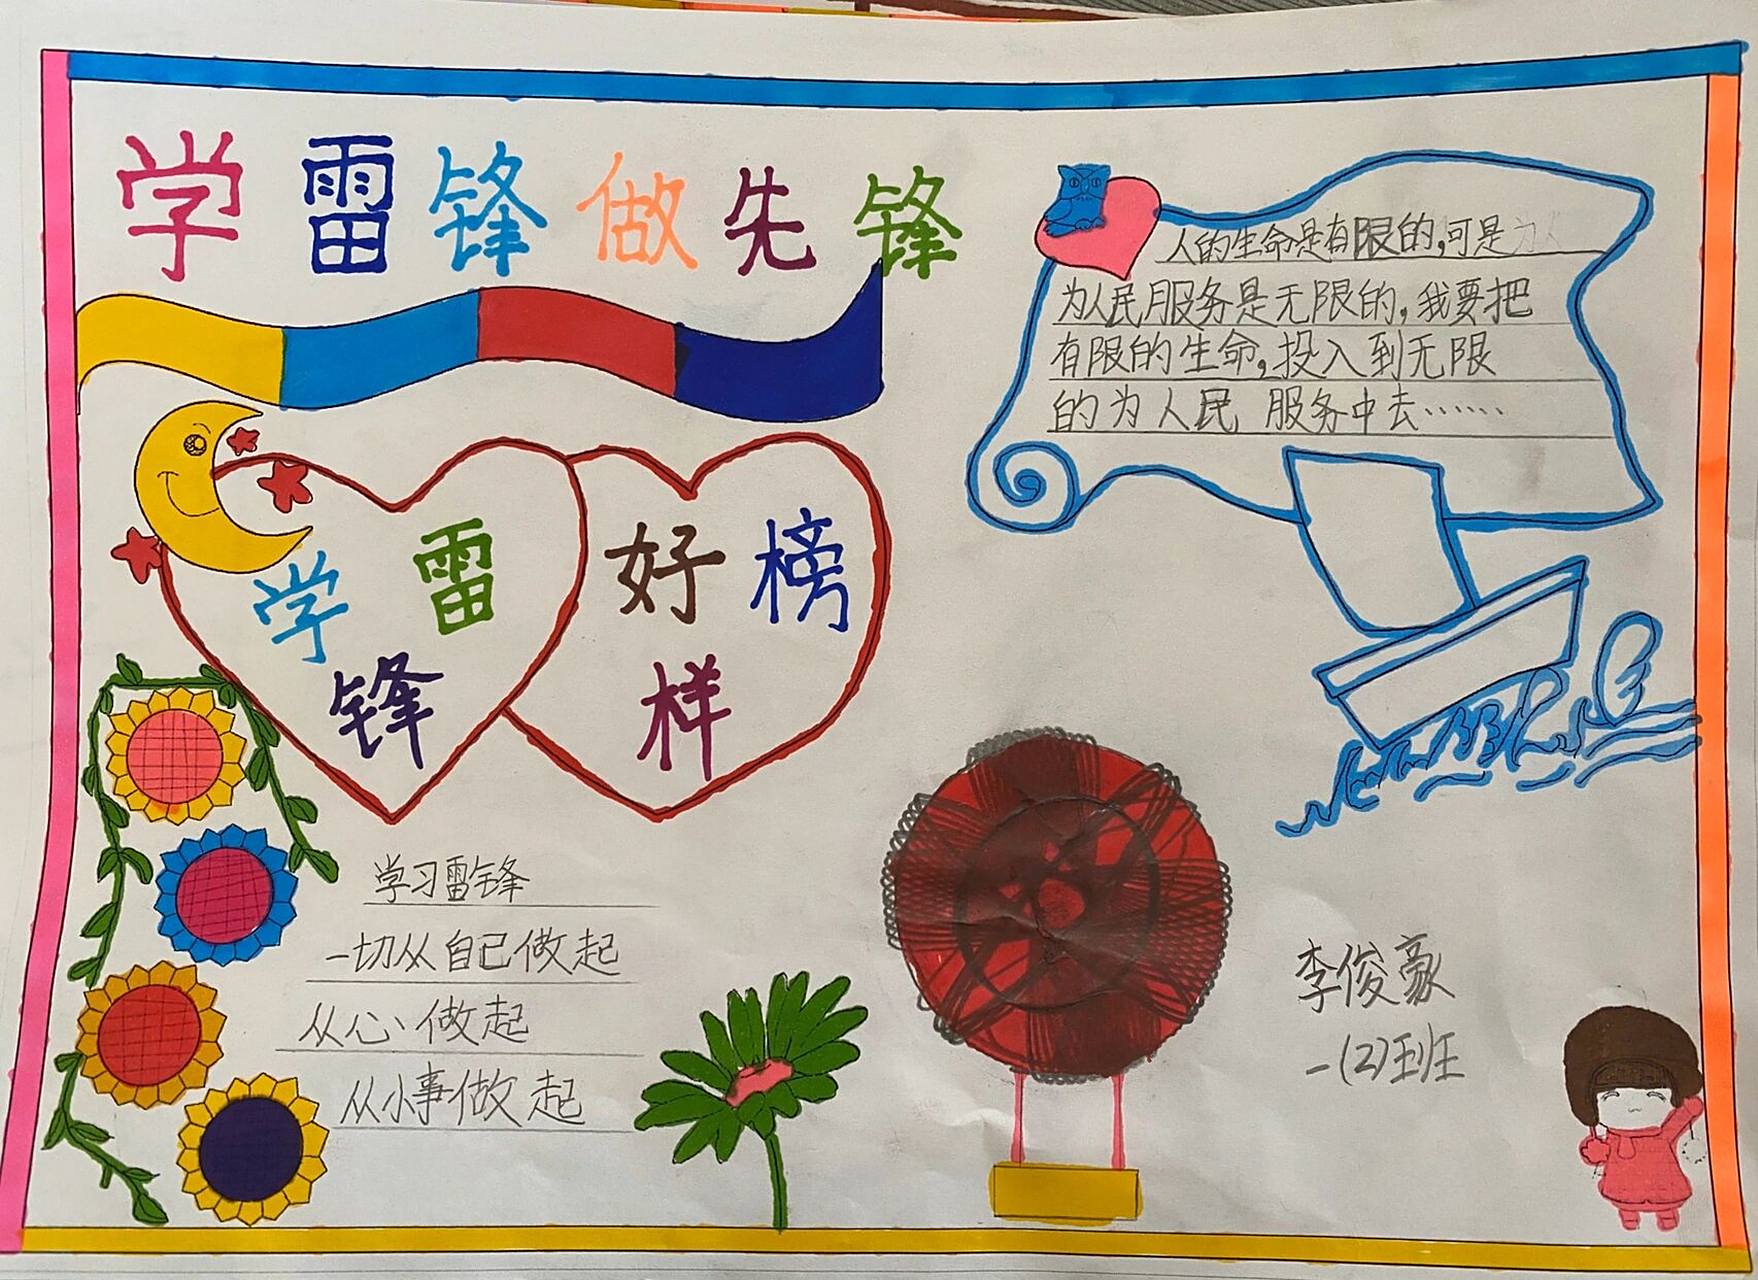 学雷锋做先锋
人的生命是有限的,可是
为人民服务是无限的,我要把
有限的生命,投入到无限
的为人民服务中去……
学雷锋
好榜样
学习雷锋
一切从自己做起
从心做起
从小事做起
李俊豪
一(2)班